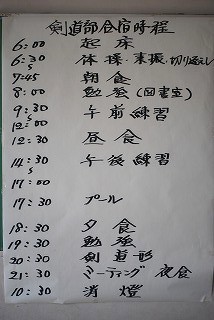 剣道部合宿時程
6:00 起床
6:30 体操、素振、切り返し
7:45 朝食
8:00 勉強(図書室)
9:30 午前練習
12:00
12:30 昼食
14:30 午後練習
17:00
17:30 プール
18:30 夕食
19:30 勉強
20:30 剣道形
21:30 ミーティング 夜食
10:30 消燈